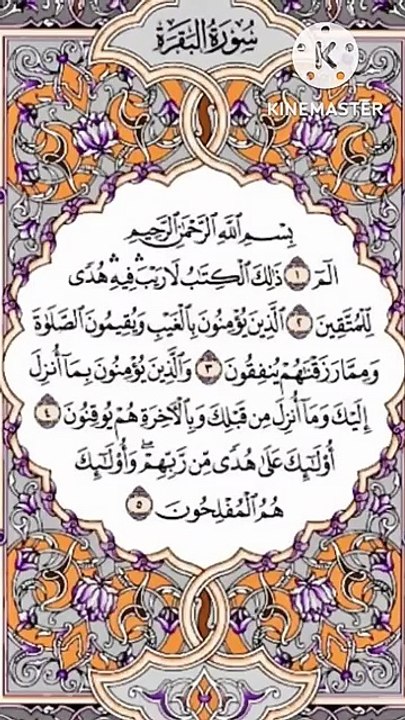 سُورَةُ البَقَرَةِ
K
KINEMASTER
بِسۡمِ ٱللَّهِ ٱلرَّحۡمَٰنِ ٱلرَّحِيمِ
الٓمٓ ١ ذَٰلِكَ ٱلۡكِتَٰبُ لَا رَيۡبَۛ فِيهِۛ هُدٗى
لِّلۡمُتَّقِينَ ٢ ٱلَّذِينَ يُؤۡمِنُونَ بِٱلۡغَيۡبِ وَيُقِيمُونَ ٱلصَّلَوٰةَ
وَمِمَّا رَزَقۡنَٰهُمۡ يُنفِقُونَ ٣ وَٱلَّذِينَ يُؤۡمِنُونَ بِمَآ أُنزِلَ
إِلَيۡكَ وَمَآ أُنزِلَ مِن قَبۡلِكَ وَبِٱلۡأٓخِرَةِ هُمۡ يُوقِنُونَ ٤
أُوْلَٰٓئِكَ عَلَىٰ هُدٗى مِّن رَّبِّهِمۡۖ وَأُوْلَٰٓئِكَ
هُمُ ٱلۡمُفۡلِحُونَ ٥